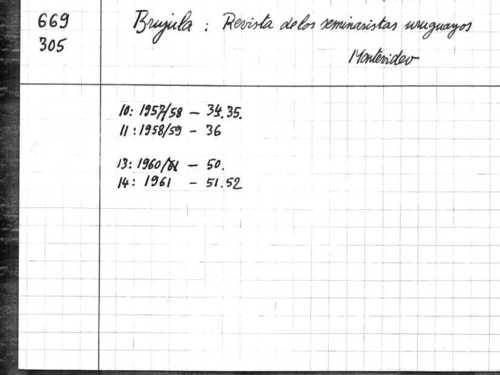 669
305
Brujula : Revista de los seminaristas uruguayos
Montevideo
10: 1957/58 – 34.35.
11: 1958/59 – 36
13: 1960/61 – 50.
14: 1961 – 51.52